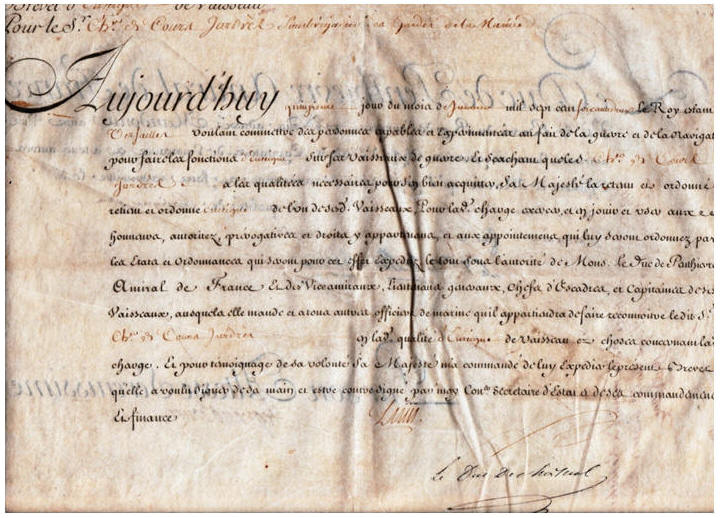 Brevet d'Enseigne de Vaisseau
Pour le Sr. Cher. de Cours Jardres
Aujourd'huy quinzieme jour du mois de Janvier mil sept cent soixante le Roy estant
Versailles voulant commettre des personnes capables et Experimentées au fait de la guerre et de la Navigat
pour faire les fonctions d'Enseigne Sur ses Vaisseaux de guerre, Et Sachant que led. S. Cher. de Cours
Jardres a les qualitéz necessaires pour s'en bien acquiter, Sa Majesté l'a retenu et ordonné
retient et ordonne Enseigne de l'un de sesd. Vaisseaux Pour lad. charge exercer, et en jouir et user aux
honneurs, autoritez, prerogatives et droits y appartenans, et aux appointemens qui luy seront ordonnez par
les Etats et Ordonnances qui seront pour cet effet Expediez le tout sous l'autorité de Mons. Le Duc de Penthievre
Amiral de France Et des Viceamiraux, Lieutenans generaux, Chefs d'Escadres, et Capitaines de ses
Vaisseaux, ausquels elle mande et a tous autres officiers de marine qu'il appartiendra de faire reconnoitre le dit Sr.
Cher. de Cours Jardres en lad. qualité d'Enseigne de Vaisseau ez choses concernant lad
charge. Et pour témoignage de sa volonté Sa Majesté m'a commandé de luy Expedier le present Brevet
qu'elle a voulu signer de sa main, et estre contresigné par moy Conr. Secretaire d'Etat et de ses commandemens
Et finance Louis
Le Duc De Choiseul